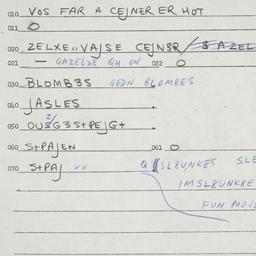 010 VOS FAR A CEJNER ER HOT
011 O
020 ZELXE VAJSE CEJNER / S AZEL
021 — GAZELXE QH ON 022 O
030 BLOMB3S GEDN BLOMBES
040 JASLES
050 OUSG3S+PEJG+
060 S+PAJEN 061 O
070 S+PAJ xx Q SL8UNKES SLE
IMSL8UNKBE
FUN MOV